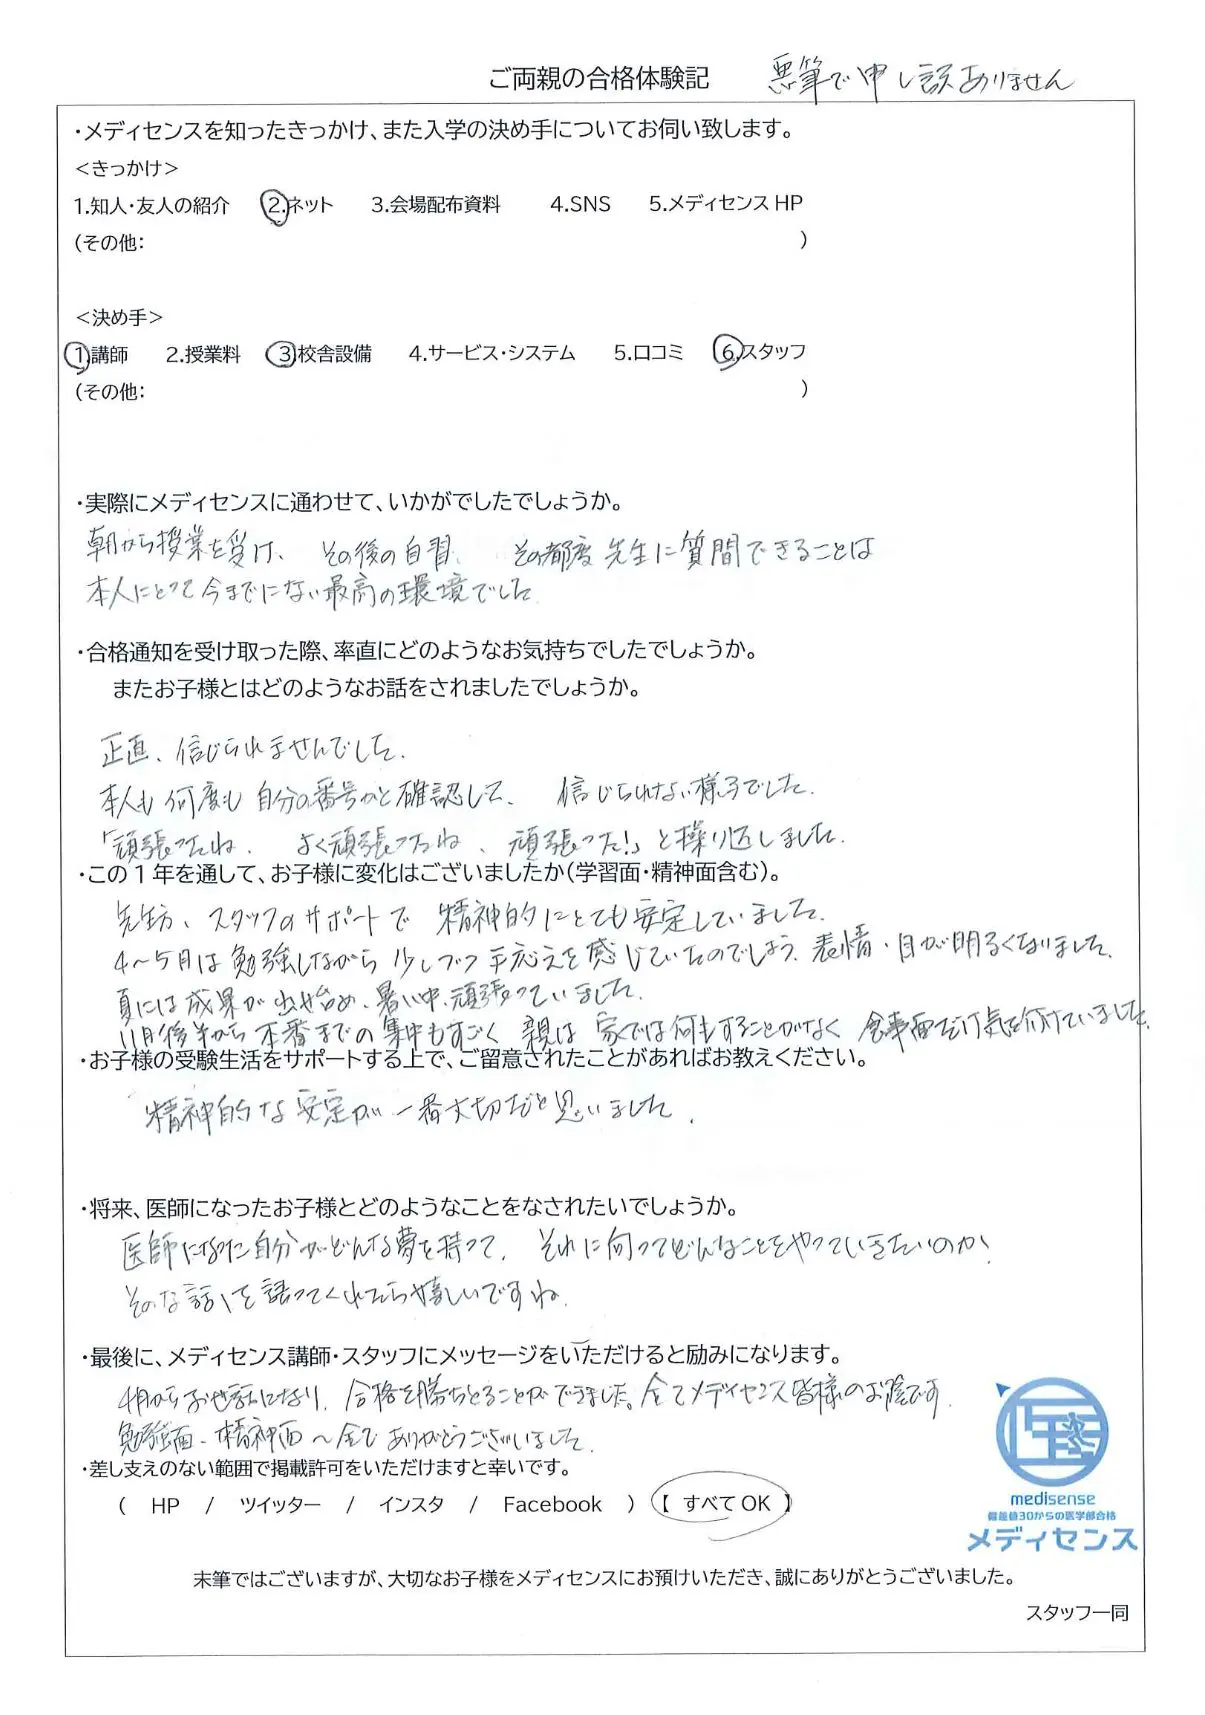 ご両親の合格体験記 悪筆で申し訳ありません
・メディセンスを知ったきっかけ、また入学の決め手についてお伺い致します。
＜きっかけ＞
1.知人・友人の紹介 2.ネット 3.会場配布資料 4.SNS 5.メディセンスHP
(その他: )
＜決め手＞
1.講師 2.授業料 3.校舎設備 4.サービス・システム 5.口コミ 6.スタッフ
(その他: )
・実際にメディセンスに通わせて、いかがでしたでしょうか。
朝から授業を受け、 その後の自習、 その都度先生に質問できることは
本人にとって今までにない最高の環境でした
・合格通知を受け取った際、率直にどのようなお気持ちでしたでしょうか。
またお子様とはどのようなお話をされましたでしょうか。
正直、信じられませんでした.
本人も何度も自分の番号かと確認して、 信じられない様子でした.
「頑張ったね、 よく頑張ったね、頑張った!」と繰り返しました.
・この1年を通して、お子様に変化はございましたか(学習面・精神面含む)。
先生方、スタッフのサポートで 精神的にとても安定していました.
4〜5月は勉強しながら少しづつ手応えを感じていたのでしょう、表情・目が明るくなりました.
夏には成果が出始め、暑い中、頑張っていました.
11月後半から本番までの集中もすごく 親は家では何もすることがなく 食事面だけ気を付けていました.
・お子様の受験生活をサポートする上で、ご留意されたことがあればお教えください。
精神的な安定が一番大切だと思いました.
・将来、医師になったお子様とどのようなことをなされたいでしょうか。
医師になった自分がどんな夢を持って、それに向ってどんなことをやっていきたいのか、
そんな話しを語ってくれたら嬉しいですね.
・最後に、メディセンス講師・スタッフにメッセージをいただけると励みになります。
4月からお世話になり、合格を勝ちとることができました。全てメディセンス皆様のお陰です.
勉強面、精神面〜全て ありがとうございました.
・差し支えのない範囲で掲載許可をいただけますと幸いです。
( HP / ツイッター / インスタ / Facebook ) 【 すべてOK 】
medisense
偏差値30からの医学部合格
メディセンス
末筆ではございますが、大切なお子様をメディセンスにお預けいただき、誠にありがとうございました。
スタッフ一同